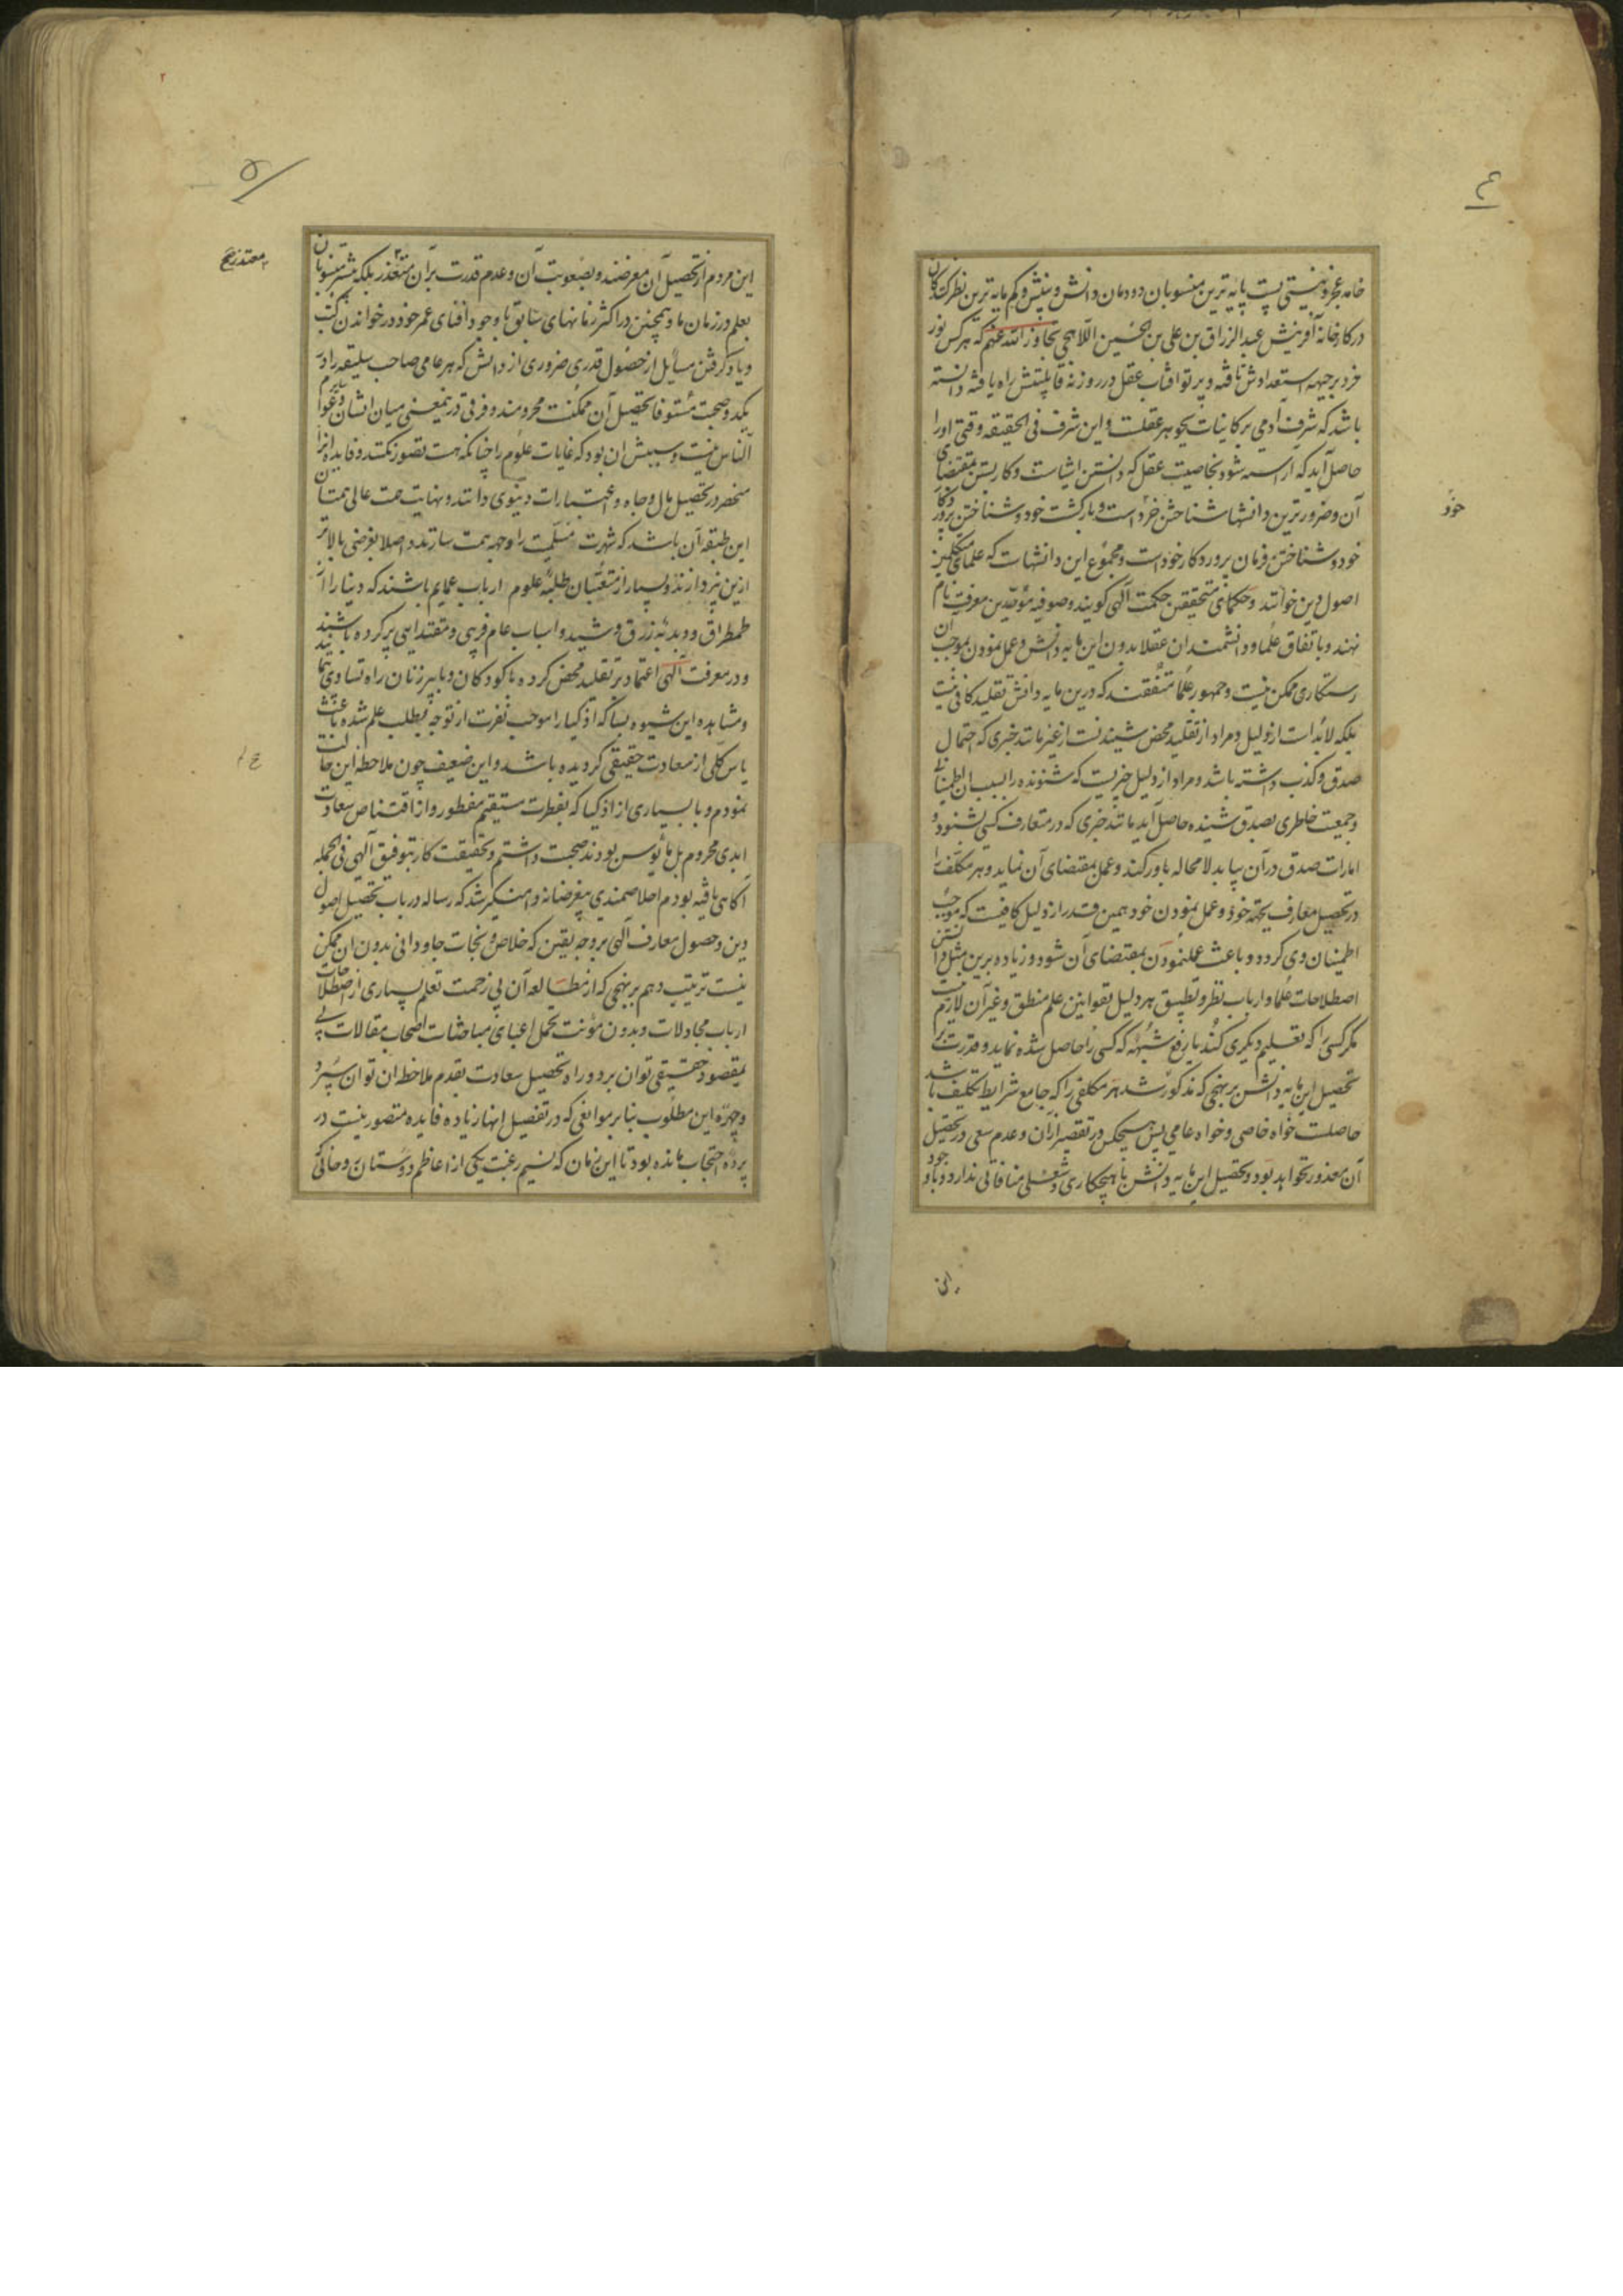 ٤
خامه عجز و نیستی پست پایه‌ترین منسوبان دودمان دانش و بینش و کم مایه‌ترین نظرکنندکان
درکارخانه آفرینش عبد الرزاق بن علی بن الحسین اللاهجی تجاوز الله عنهم که هرکس نور
خرد بر جبهه استعدادش تافته و پرتو آفتاب عقل در روزنه قابلیتش راه یافته دانسته
باشد که شرف آدمی بر کاینات بجوهر عقلست و این شرف فی الحقیقه وقتی او را
حاصل آید که آراسته شود بخاصیت عقل که دانستن اشیاست و کار بستن بمقتضای
آن و ضرورترین دانشها شناختن خود است و بازکشت خود و شناختن پروردکار
خود
خود و شناختن فرمان پروردکار خود است و مجموع این دانشهاست که علمای متکلمین
اصول دین خوانند و حکمای متحققین حکمت آلهی کویند و صوفیه موحدین معرفت نام
نهند و باتفاق علما و دانشمندان عقلا بدون این مایه دانش و عمل نمودن بموجب آن
رستکاری ممکن نیست و جمهور علما متفقند که درین مایه دانش تقلید کافی نیست
بلکه لابد است از دلیل و مراد از تقلید محض شنیدنست از غیر مانند خبری که احتمال
صدق و کذب داشته باشد و مراد از دلیل چیزیست که شنونده را بسبب آن اطمینانی
و جمعیت خاطری بصدق شنیده حاصل آید مانند خبری که در متعارف کسی بشنود و
امارات صدق در آن بیابد لامحاله باور کند و عمل بمقتضای آن نماید و هر مکلف را
در تحصیل معارف یقینه خود و عمل نمودن خود همین قدر از دلیل کافیست که موجب
اطمینان وی کردد و باعث عمل نمودن بمقتضای آن شود و زیاده برین مثل دانستن
اصطلاحات علما و ارباب نظر و تطبیق هر دلیل بقوانین علم منطق و غیر آن لازم نیست
مکر کسی را که تعلیم دیکری کند یا رفع شبهه که کسی را حاصل شده نماید و قدرت بر
تحصیل این مایه دانش بر نهجی که مذکور شد هر مکلفی را که جامع شرایط تکلیف باشد
حاصلست خواه خاصی و خواه عامی پس هیچکس در تقصیر از آن و عدم سعی در تحصیل
آن معذور نخواهد بود و تحصیل این مایه دانش با هیچ کاری و شغلی منافاتی ندارد و با وجود
این
٥
این مردم از تحصیل آن معرضند و بصعوبت آن و عدم قدرت بر آن متعذر بلکه بیشتر منسوبان
بعلم در زمان ما و همچنین در اکثر زمانهای سابق با وجود افنای عمر خود در خواندن کتب
و یاد کرفتن مسایل از حصول قدری ضروری از دانش که هر عامی صاحب سلیقه را در
یکدو صحبت مستوفا تحصیل آن ممکنست محرومند و فرقی درین معنی میان ایشان و عوام
الناس نیست و سببش آن بود که غایات علوم را چنانکه هست تصور نکنند و فایده آنرا
منحصر در تحصیل مال و جاه و اعتبارات دنیوی دانند و نهایت همت عالی همتان
این طبقه آن باشد که شهرت مسلمیت را وجهه همت سازند و اصلا بغرضی بالاتر
ازین نپردازند و بسیار از منتسبان طلبه علوم ارباب عمایم باشند که دنیا را از
طمطراق و دبدبه زرق و شید و اسباب عام فریبی و مقتدایی پر کرده باشند
و در معرفت آلهی اعتماد بر تقلید محض کرده با کودکان و با پیرزنان راه تساوی پیمایند
و مشاهده این شیوه بسا که اذکیا را موجب نفرت از توجه بطلب علم شده باعث
یاس کلی از سعادت حقیقی کردیده باشد و این ضعیف چون ملاحظه این حالت
نمودم و با بسیاری از اذکیا که بفطرت مستقیم مفطور و از اقتناص سعادت
ابدی محروم بل مایوس بودند صحبت داشتم و بحقیقت کار بتوفیق آلهی فی الجمله
آکاهی یافته بودم اخلاصمندی بیغرضانه دامنکیر شد که رساله در باب تحصیل اصول
دین و حصول معارف آلهی بر وجه یقین که خلاص و نجات جاودانی بدون آن ممکن
نیست ترتیب دهم بر نهجی که از مطالعه آن بی زحمت تعلم بسیاری از اصطلاحات
ارباب مجادلات و بدون مؤنت تحمل اعبای مباحثات اصحاب مقالات پی
بمقصود حقیقی توان برد و راه تحصیل سعادت بقدم ملاحظه آن توان سپرد
و چهره این مطلوب بنا بر موانعی که در تفصیل آنها زیاده فایده متصور نیست در
پرده احتجاب مانده بود تا این زمان که نسیم رغبت یکی از اعاظم دوستان روحانی